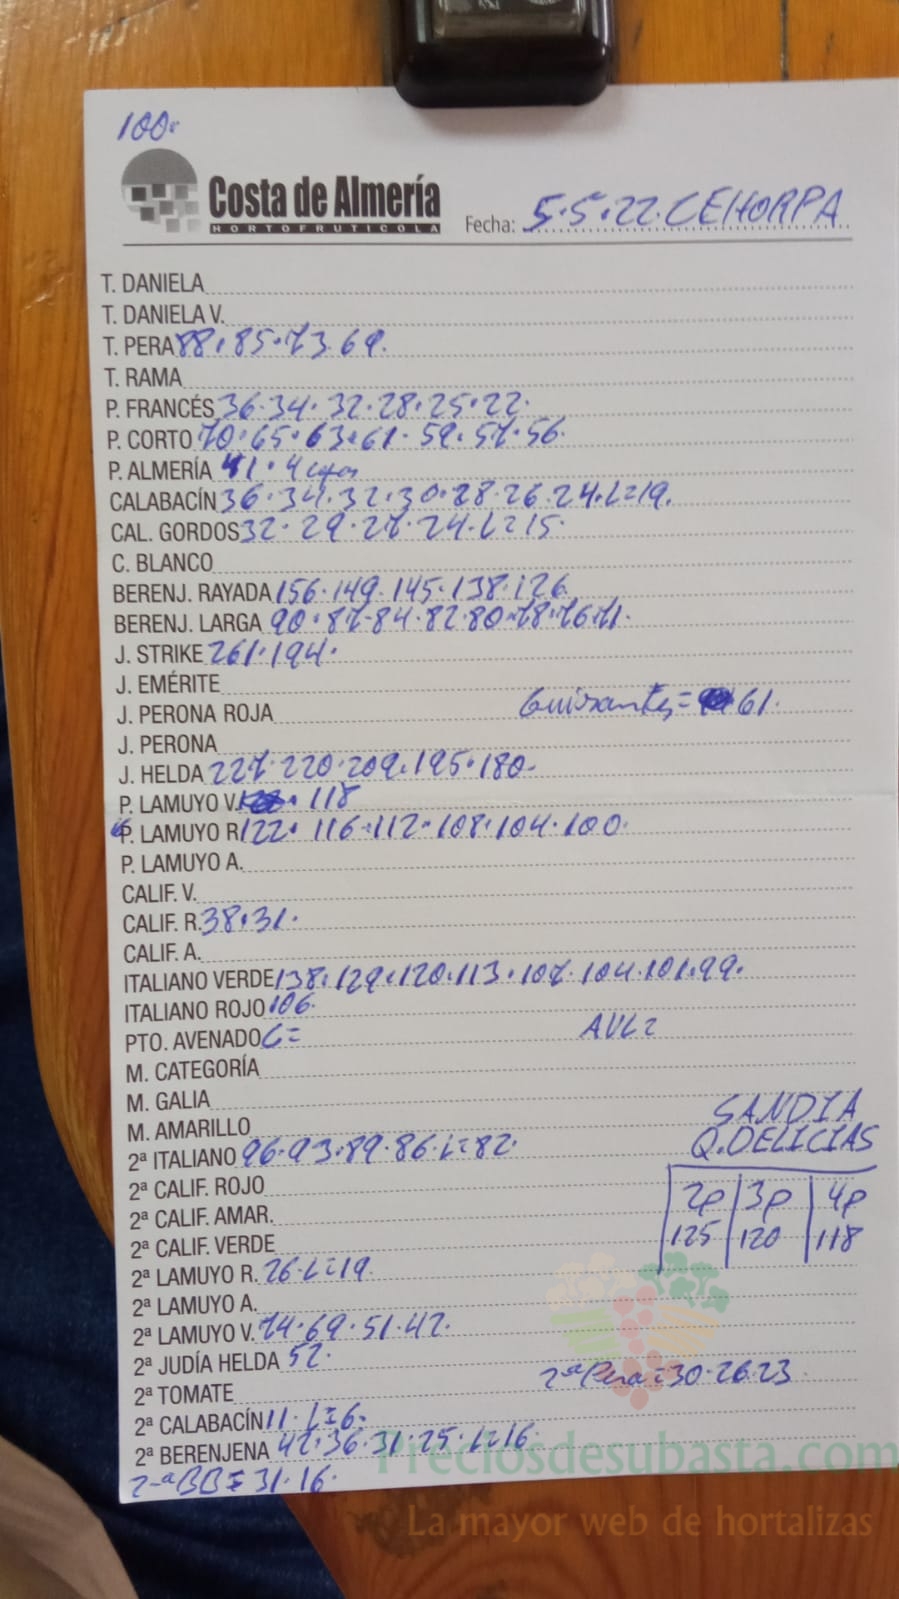 100.
Costa de Almería
HORTOFRUTICOLA
Fecha: 5.5.22. CEHORPA
T. DANIELA
T. DANIELA V.
T. PERA 88. 85. 73. 69.
T. RAMA
P. FRANCÉS 36. 34. 32. 28. 25. 22.
P. CORTO 70. 65. 63. 61. 59. 57. 56.
P. ALMERÍA 41. 4
CALABACÍN 36. 34. 32. 30. 28. 26. 24. L=19.
CAL. GORDOS 32. 29. 27. 24. L=15.
C. BLANCO
BERENJ. RAYADA 156. 149. 145. 138. 126.
BERENJ. LARGA 90. 87. 84. 82. 80. 78. 76. 71.
J. STRIKE 261. 194.
J. EMÉRITE
J. PERONA ROJA Guisantes= 61.
J. PERONA
J. HELDA 227. 220. 209. 195. 180.
P. LAMUYO V. 118
P. LAMUYO R. 122. 116. 112. 108. 104. 100.
P. LAMUYO A.
CALIF. V.
CALIF. R. 38. 31.
CALIF. A.
ITALIANO VERDE 138. 129. 120. 113. 107. 104. 101. 99.
ITALIANO ROJO 106.
PTO. AVENADO C= AVL=
M. CATEGORÍA
M. GALIA
M. AMARILLO
SANDIA
Q. DELICIAS
2p 3p 4p
125 120 118
2ª ITALIANO 96. 93. 89. 86. L=82.
2ª CALIF. ROJO
2ª CALIF. AMAR.
2ª CALIF. VERDE
2ª LAMUYO R. 26. L=19.
2ª LAMUYO A.
2ª LAMUYO V. 74. 69. 51. 42.
2ª JUDÍA HELDA 52.
2ª TOMATE 2ª Pera=30. 26. 23
2ª CALABACÍN 11. L=6.
2ª BERENJENA 42. 36. 31. 25. L=16.
2ª BB= 31. 16.
Preciosdesubasta.com
La mayor web de hortalizas